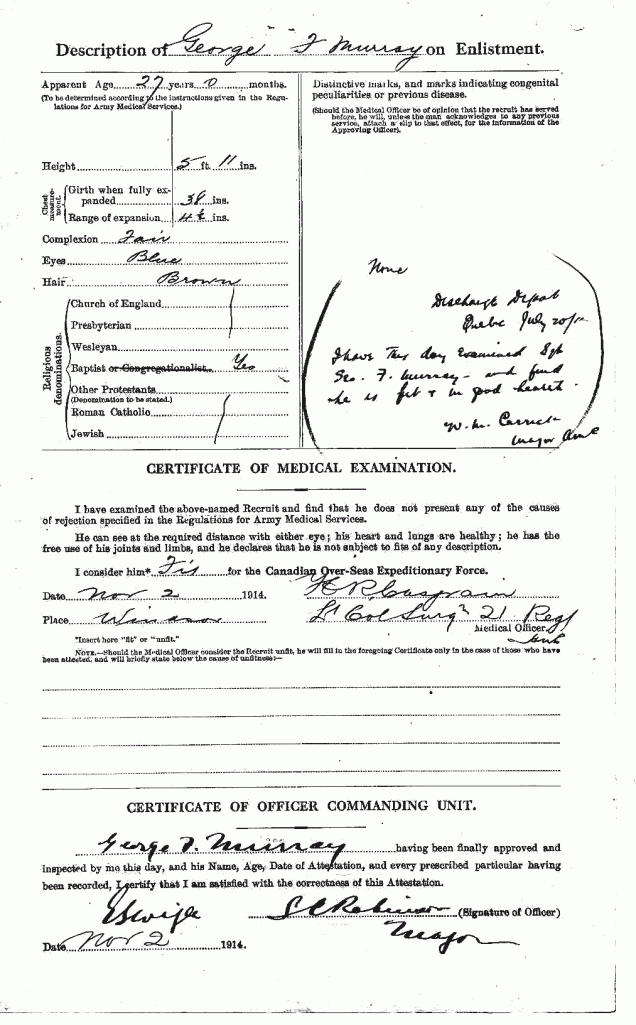 Description of George F Murray on Enlistment.
Apparent Age 27 years 0 months.
(To be determined according to the instructions given in the Regu-
lations for Army Medical Services.)
Height 5 ft. 11 ins.
Chest measure-ment.
Girth when fully ex-
panded 38 ins.
Range of expansion 4½ ins.
Complexion Fair
Eyes Blue
Hair Brown
Religious denominations.
Church of England
Presbyterian
Wesleyan
Baptist or Congregationalist Yes
Other Protestants
(Denomination to be stated.)
Roman Catholic
Jewish
Distinctive marks, and marks indicating congenital
peculiarities or previous disease.
(Should the Medical Officer be of opinion that the recruit has served
before, he will, unless the man acknowledges to any previous
service, attach a slip to that effect, for the information of the
Approving Officer).
None
Discharge Depot
Quebec July 20/
I have this day Examined Sgt
Geo. F. Murray - and find
he is fit & in good health.
W. M. Carrick
Major
CERTIFICATE OF MEDICAL EXAMINATION.
I have examined the above-named Recruit and find that he does not present any of the causes
of rejection specified in the Regulations for Army Medical Services.
He can see at the required distance with either eye; his heart and lungs are healthy; he has the
free use of his joints and limbs, and he declares that he is not subject to fits of any description.
I consider him* Fit for the Canadian Over-Seas Expeditionary Force.
Date Nov 2 1914.
Place Windsor
H R Casgrain
Lt Col Surgn 21 Regt
Medical Officer.
*Insert here "fit" or "unfit."
NOTE.—Should the Medical Officer consider the Recruit unfit, he will fill in the foregoing Certificate only in the case of those who have
been attested, and will briefly state below the cause of unfitness:—
CERTIFICATE OF OFFICER COMMANDING UNIT.
George F. Murray having been finally approved and
inspected by me this day, and his Name, Age, Date of Attestation, and every prescribed particular having
been recorded, I certify that I am satisfied with the correctness of this Attestation.
S C Robinson (Signature of Officer)
Major
Date Nov 2 1914.